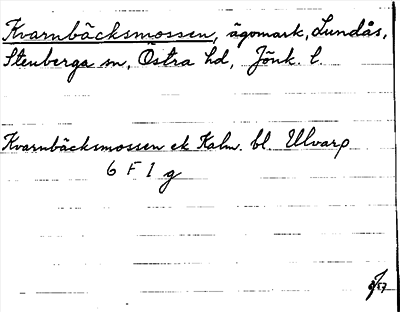 Kvarnbäcksmossen, ägomark, Lundås,
Stenberga sn, Östra hd, Jönk. l.
Kvarnbäcksmossen ek Kalm. bl. Ulvarp
6 F 1 g